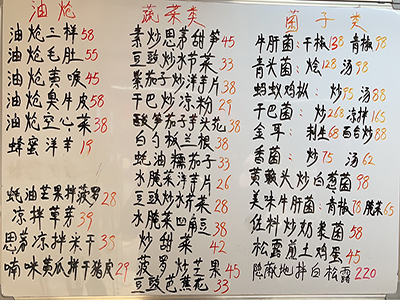 油炝
油炝三拌58
油炝毛肚55
油炝黄喉45
油炝臭牛皮58
油炝空心菜38
蜂蜜洋芋19
蚝油芒果拌菠萝28
凉拌草芽39
思茅凉拌米干35
喃咪黄瓜拼干猪皮29
蔬菜类
素炒思茅甜笋45
豆豉炒水节菜33
樂茄子炒洋芋片38
干巴炒凉粉29
酸笋茄子芋头花38
白勺板兰根38
蚝油攥茄子33
水腌菜洋芋片26
豆豉炒水茄菜28
水腌菜凹扁豆38
炒甜菜42
菠萝炒芒果45
豆豉芭蕉花33
菌子类
牛肝菌:干椒138 青椒98
青头菌:烩128 汤98
蚂蚁鸡枞:炒95 汤88
干巴菌:炒268 凉拌165
金耳:刺生68 百合炒88
香菌:炒75 汤62
黄赖头炒白葱菌98
美味牛肝菌:青椒78 腌菜65
佐料炒奶浆菌58
松露煎土鸡蛋45
隐敝地拌白松露220